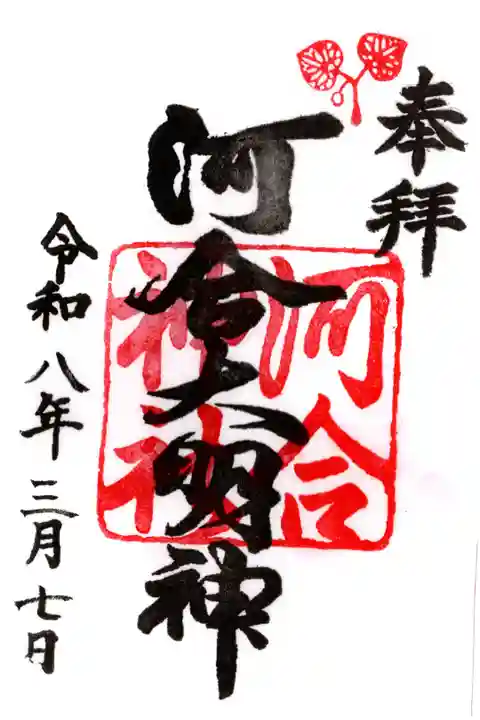 奉拝
河合大明神
河合
神社
令和八年三月七日